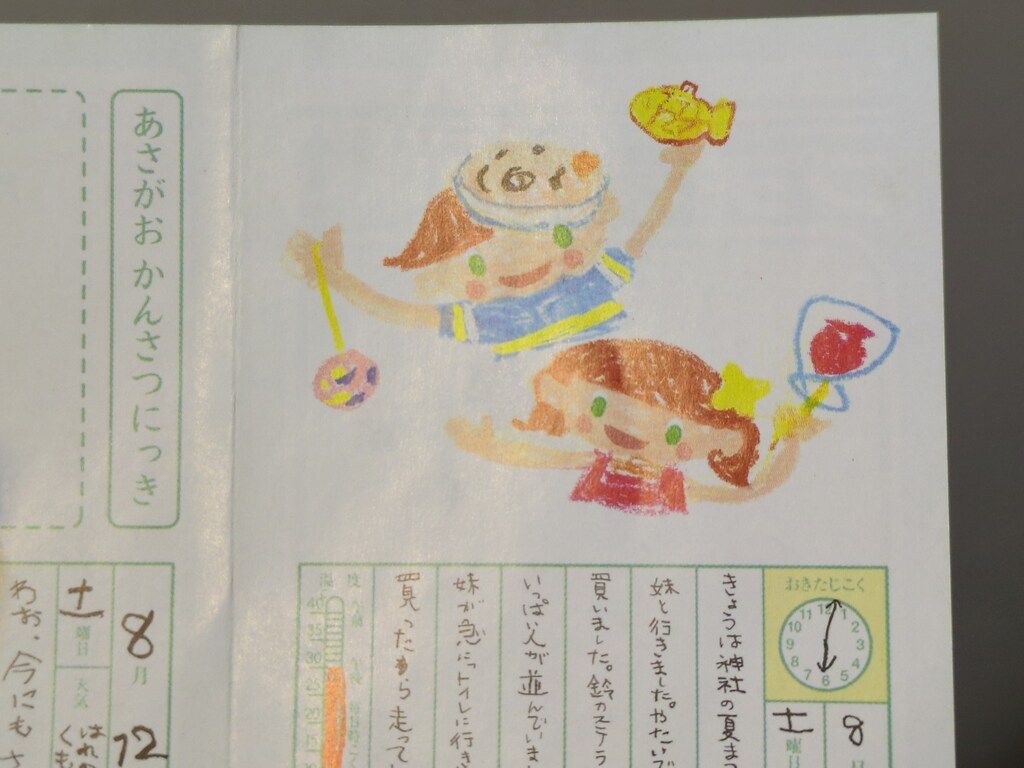 あさがお かんさつにっき
おきたじこく
11 12 1
10 2
9 3
8 4
7 6 5
8
土
曜日
きょうは神社の夏まつ
妹と行きました。やたいで
買いました。鈴カステラ
いっぱい人が並んでいま
妹が急にトイレに行き
買ったから走って
度
40
35
30
8
月
12
土
曜日
天気
はれの
くも
わお、今にもさ